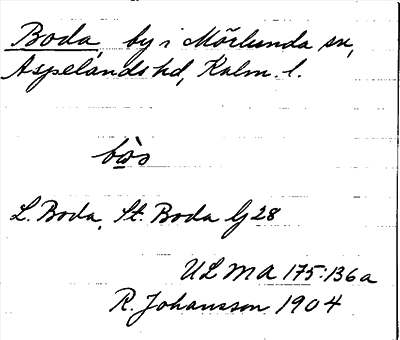 Boda, by i Mörlunda sn,
Aspelands hd, Kalm. l.
L. Boda, St. Boda G 28
ULMA 175:136a
R. Johansson 1904